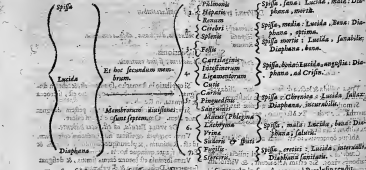 Spissa
Lucida
Diaphana
Et hoc secundum mem-
brum.
Membrorum divisiones
sunt septem.
Pulmonis
Hepatis
Renum
Cerebri
Splenis
Fellis
Cartilaginis
Intestinorum
Ligamentorum
Cutis
Carnis
Pinguedinis
Sanguinis
Mucus (Phlegma)
Lachryma
Vrina
Sudoris & sputi
Stercoris
Spissa, sana: Lucida, mala: Dia-
phana, morbi.
Spissa, media: Lucida, bona: Dia-
phana, optima.
Spissa mortis: Lucida, sanabilis:
Diaphana, bona.
Spissa, bona: Lucida, angustia: Dia-
phana, ad Crisin.
Spissa, Chronica: Lucida fallax:
Diaphana, incurabilis.
Spissa, mala: Lucida, bona: Dia-
phana, salutis.
Spissa, eretici: Lucida, intervalli:
Diaphana sanitatis.